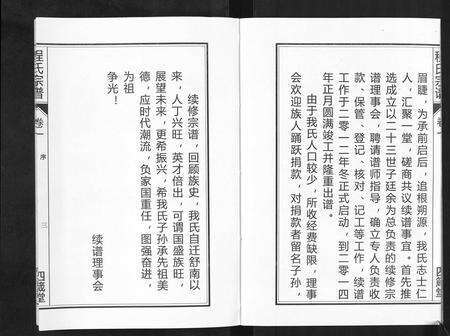 程氏宗谱
卷一
四箴堂
眉睫，为承前启后，追根朔源，我氏志士仁
人，汇聚一堂，磋商共议续谱事宜。首先推
选成立以二十三世子廷余为总负责的续修宗
谱理事会，聘请谱师指导，确立专人负责收
款、保管、登记、核对、记工等工作，续谱
工作于二零一二年冬正式启动，到二零一四
年正月圆满竣工并隆重出谱。
由于我氏人口较少，所收经费缺限，理事
会欢迎族人踊跃捐款，对捐款者留名子孙，
续修宗谱，回顾族史，我氏自迁舒南以
来，人丁兴旺，英才倍出，可谓国盛族旺，
展望未来，更希振兴，希我氏子孙承先祖美
德，应时代潮流，负家国重任，图强奋进，
为祖
争光！
续谱理事会
程氏宗谱
卷一
序
三
四箴堂